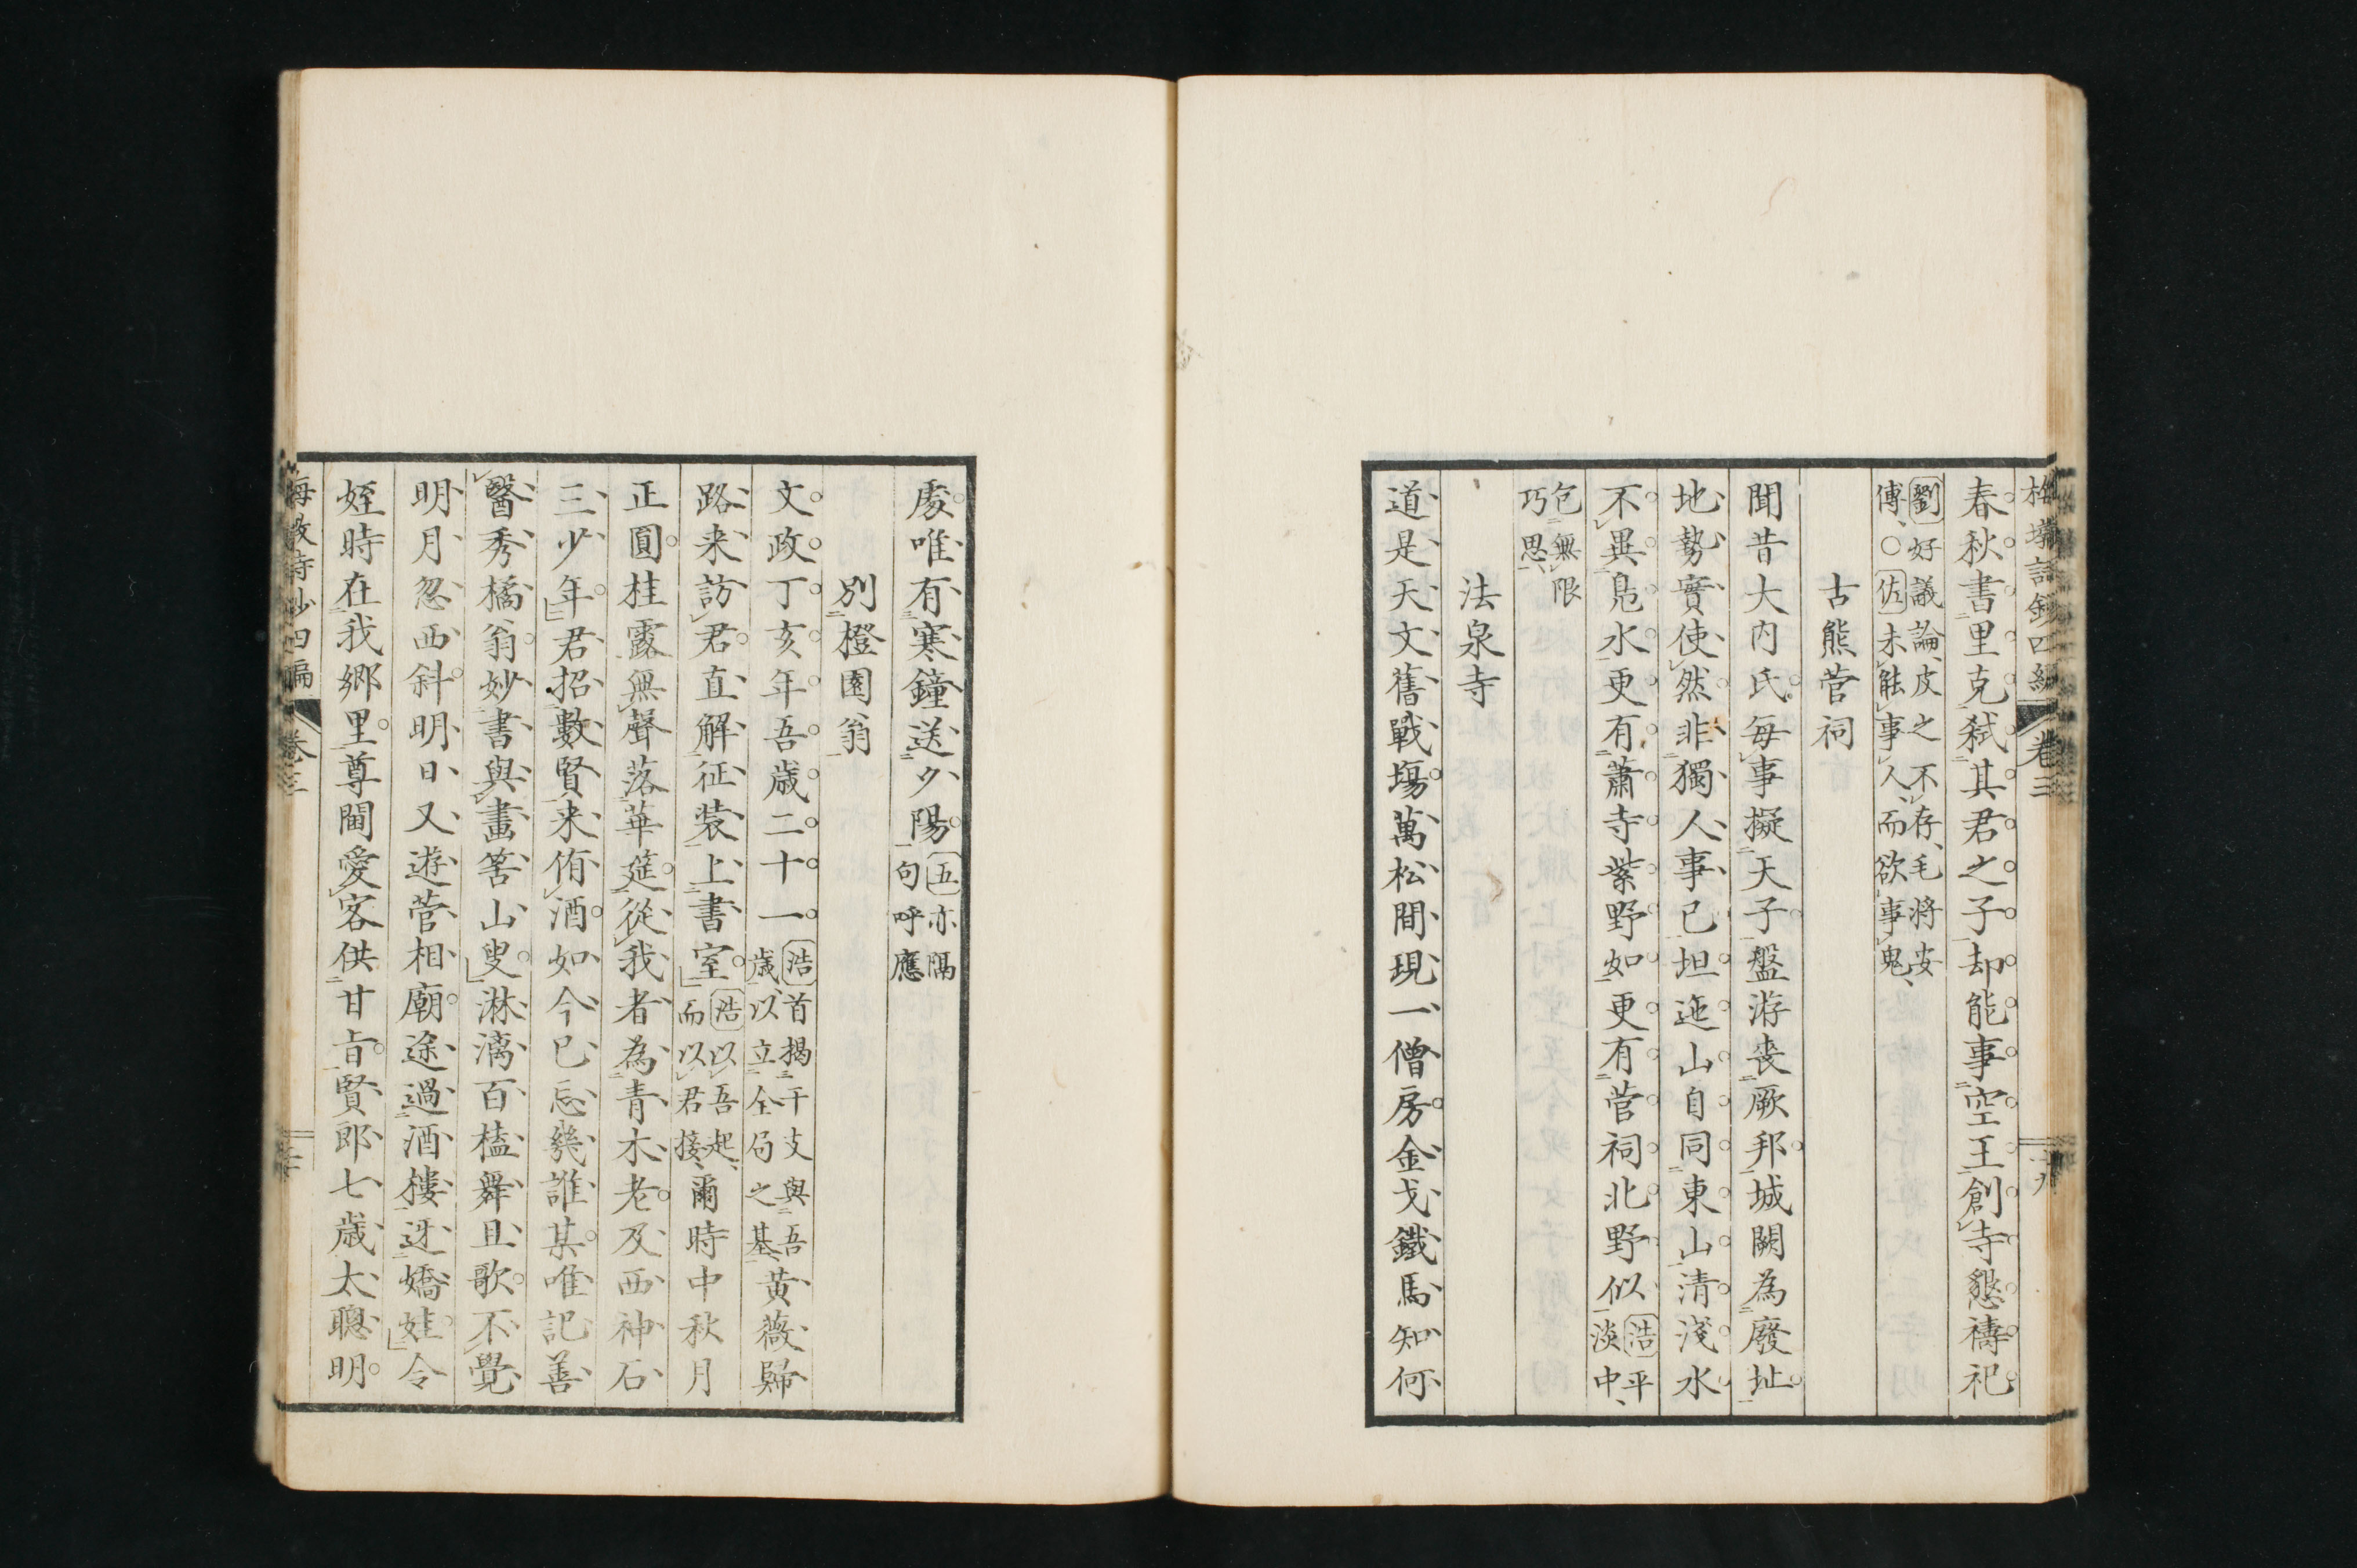 梅墩詩鈔四編 卷三 十九
春秋書里克弑其君之子却能事空王創寺懇禱祀
劉好議論皮之不存毛將安
傅○佐未能事人而欲事鬼
古熊菅祠
聞昔大内氏每事擬天子盤游喪厥邦城闕為廢址
地勢實使然非獨人事已坦迤山自同東山清淺水
不異鳧水更有蕭寺紫野如更有菅祠北野似浩平
淡中
包無限
巧思
法泉寺
道是天文舊戰塲萬松間現一僧房金戈鐵馬知何
處唯有寒鐘送夕陽五亦隔
句呼應
別橙園翁
文政丁亥年吾歲二十一浩首揭干支與吾
歲以立全局之基黃薇歸
路来訪君直解征裝上書室浩以吾起
而以君接爾時中秋月
正圓桂露無聲落華筵從我者為青木老及西神石
三少年君招數賢来侑酒如今已忘幾誰某唯記善
醫秀橘翁妙書與畫筈山叟淋漓百榼舞且歌不覺
明月忽西斜明日又遊菅相廟途過酒樓迓嬌娃令
姪時在我鄉里尊閫愛客供甘旨賢郎七歲太聰明
梅墩詩鈔四編 卷三